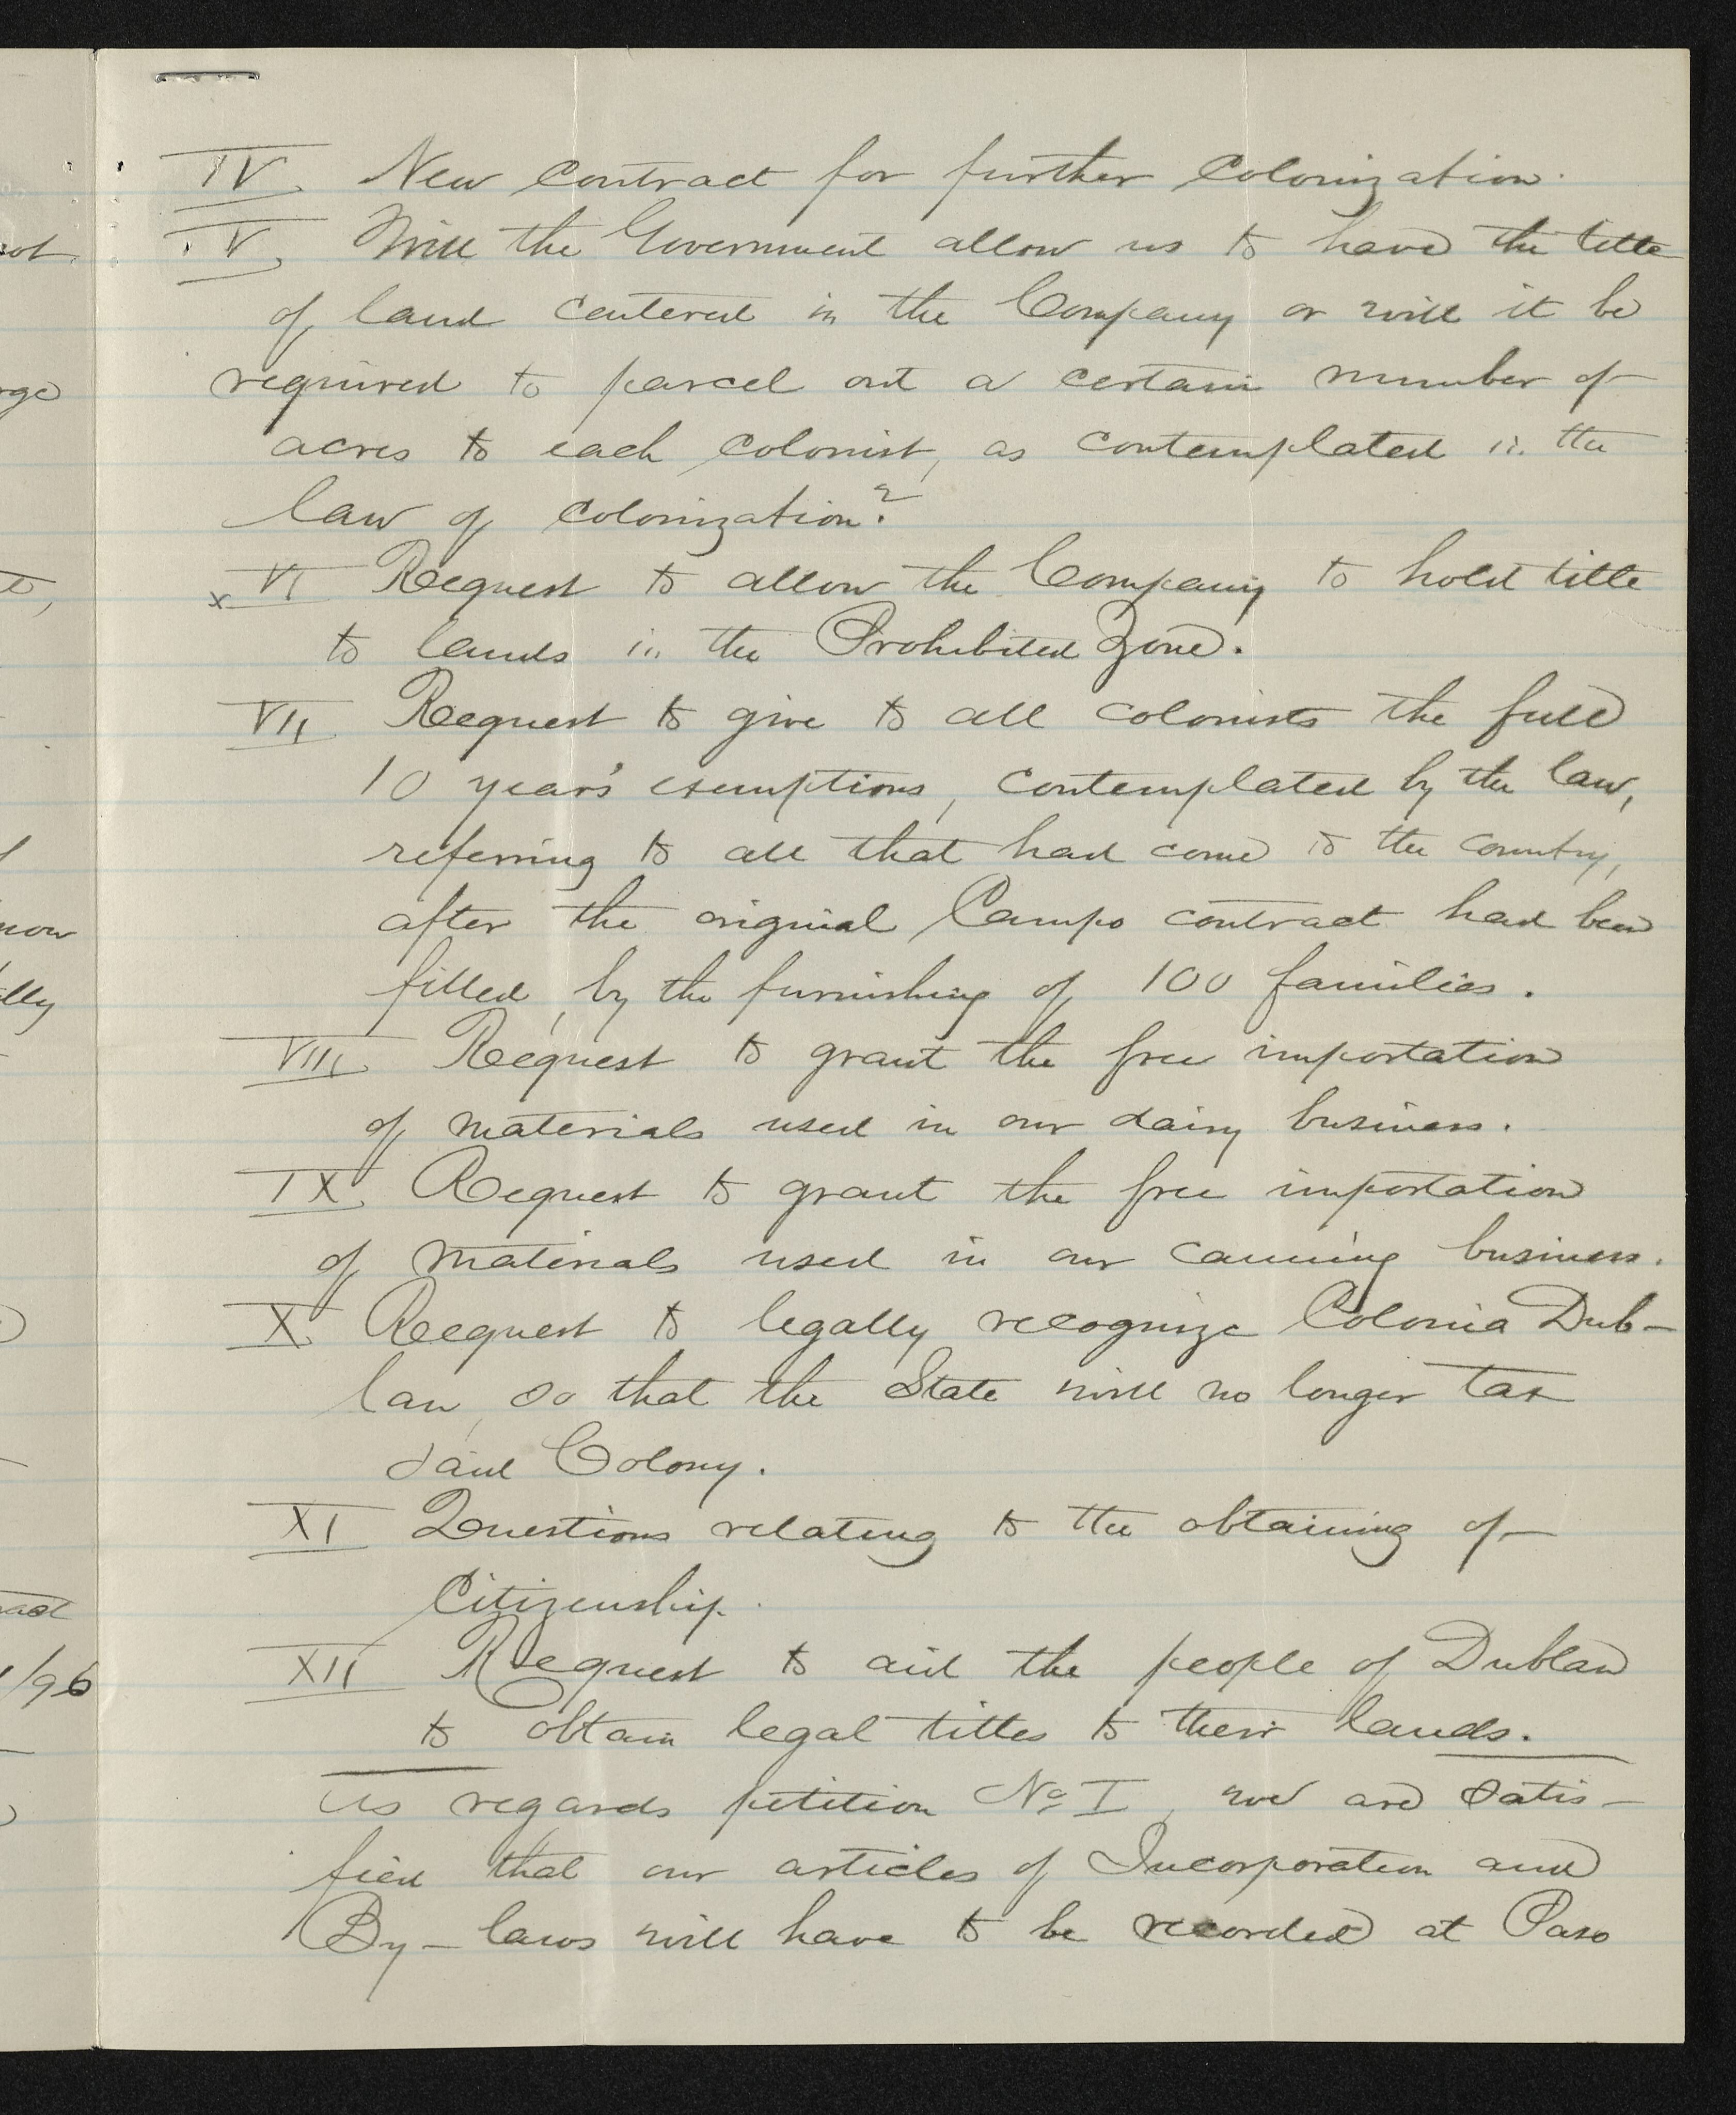 IV. New contract for further Colonization.
V. Will the Government allow us to have the title
of land centered in the Company or will it be
required to parcel out a certain number of
acres to each colonist, as contemplated in the
law of colonization?
x VI Request to allow the Company to hold title
to lands in the Prohibited Zone.
VII Request to give to all colonists the full
10 year's exemptions, contemplated by the law,
referring to all that had come to the country,
after the original Campo contract had been
filled, by the furnishing of 100 families.
VIII. Request to grant the free importation
of materials used in our dairy business.
IX. Request to grant the free importation
of materials used in our canning business.
X. Request to legally recognize Colonia Dub-
lan, so that the State will no longer tax
said Colony.
XI Questions relating to the obtaining of
Citizenship.
XII Request to aid the people of Dublan
to obtain legal titles to their lands.
As regards petition No. I, we are satis-
fied that our articles of Incorporation and
By-laws will have to be recorded at Paso
rge
now
lly
/96